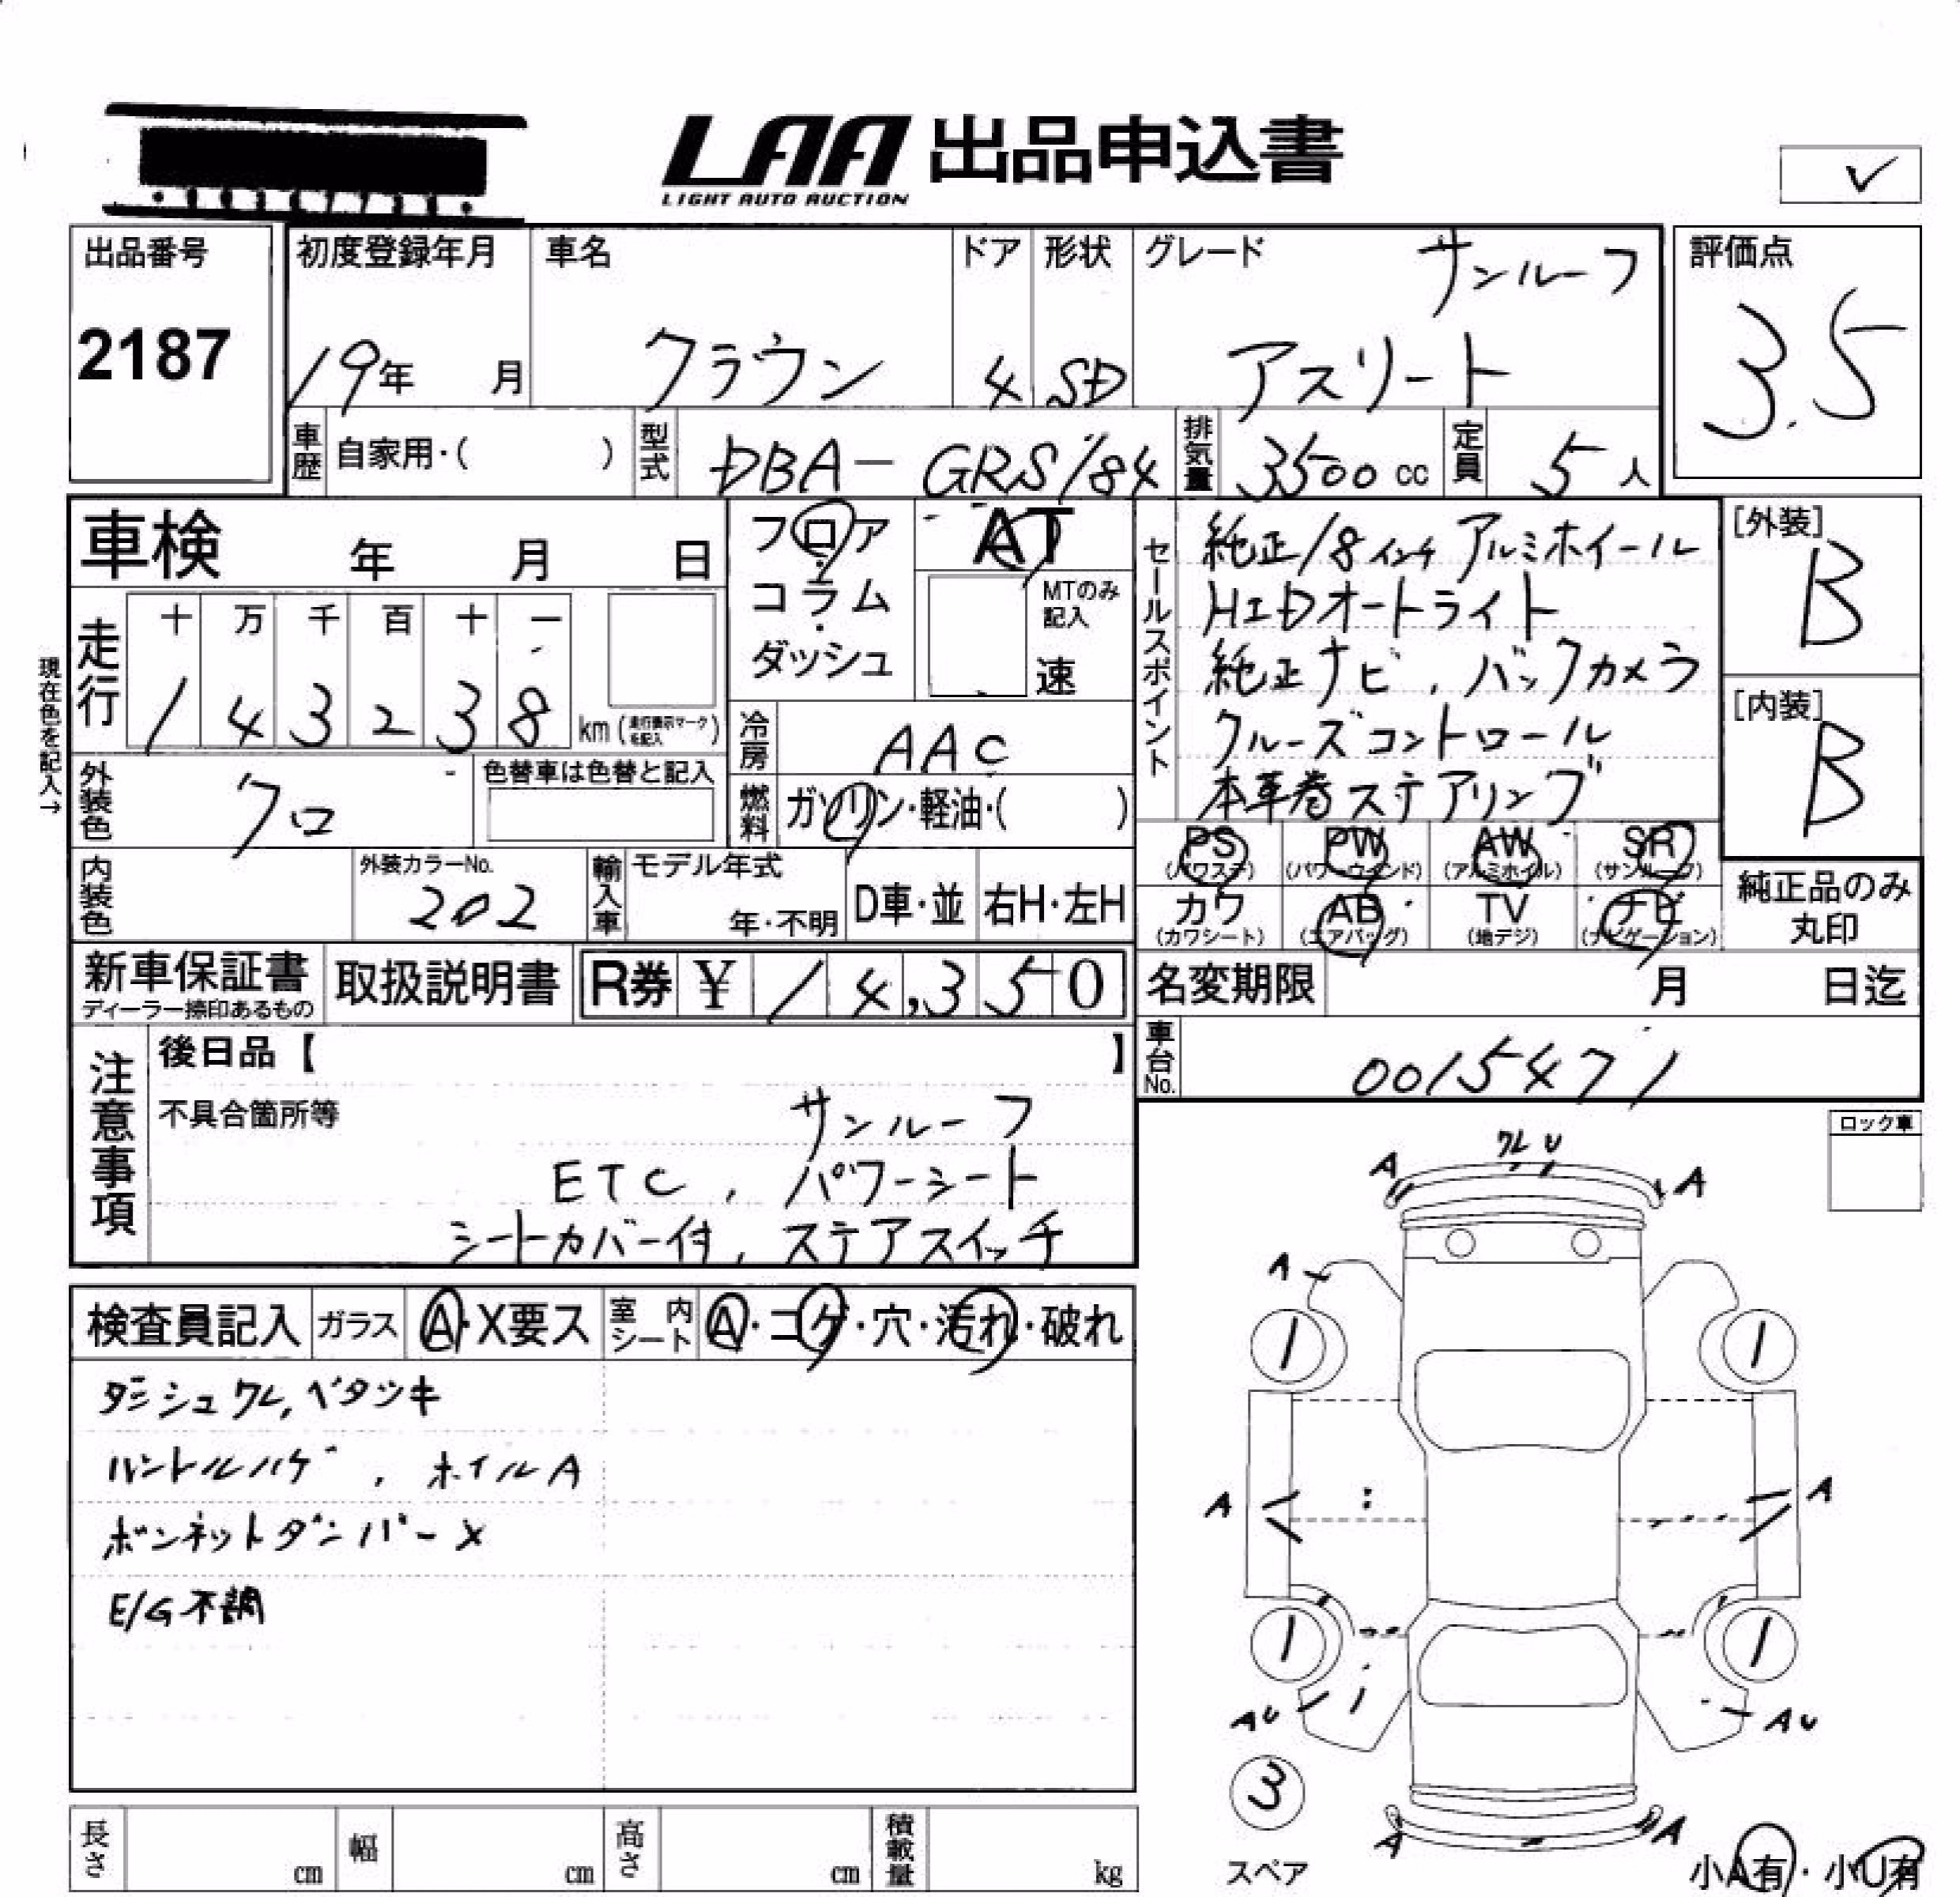 LAA 出品申込書
LIGHT AUTO AUCTION
✓
出品番号
2187
初度登録年月
19年 月
車名
クラウン
ドア
4
形状
SD
グレード
サンルーフ
アスリート
評価点
3.5
車歴 自家用・( )
型式 DBA-GRS184
排気量 3500 cc
定員 5 人
車検 年 月 日
現在色を記入→
走行 十 万 千 百 十 一
1 4 3 2 3 8 km
フロア・コラム・ダッシュ
AT
MTのみ記入
速
冷房 AAC
燃料 ガソリン・軽油・( )
外装色 クロ
色替車は色替と記入
内装色
外装カラーNo.
202
輸入車 モデル年式
年・不明
D車・並
右H・左H
セールスポイント
純正18インチアルミホイール
HIDオートライト
純正ナビ,バックカメラ
クルーズコントロール
本革巻ステアリング
[外装]
B
[内装]
B
PS PW AW SR
(パワステ) (パワーウインド) (アルミホイル) (サンルーフ)
カワ AB TV ナビ
(カワシート) (エアバッグ) (地デジ) (ナビゲーション)
純正品のみ
丸印
新車保証書
ディーラー捺印あるもの
取扱説明書
R券 ¥ 14,350
名変期限 月 日迄
車台No. 0015471
注意事項
後日品【 】
不具合箇所等
サンルーフ
ETC,パワーシート
シートカバー付,ステアスイッチ
ロック車
検査員記入
ガラス A・X要ス
室内シート A・コゲ・穴・汚れ・破れ
ダッシュワレ,ベタツキ
ハンドルハゲ,ホイルA
ボンネットダンパーX
E/G不調
ワレ U
A A
A
1 1
A A
1 1
AU AU
3
スペア
A A
小A有・小U有
長さ cm
幅 cm
高さ cm
積載量 kg